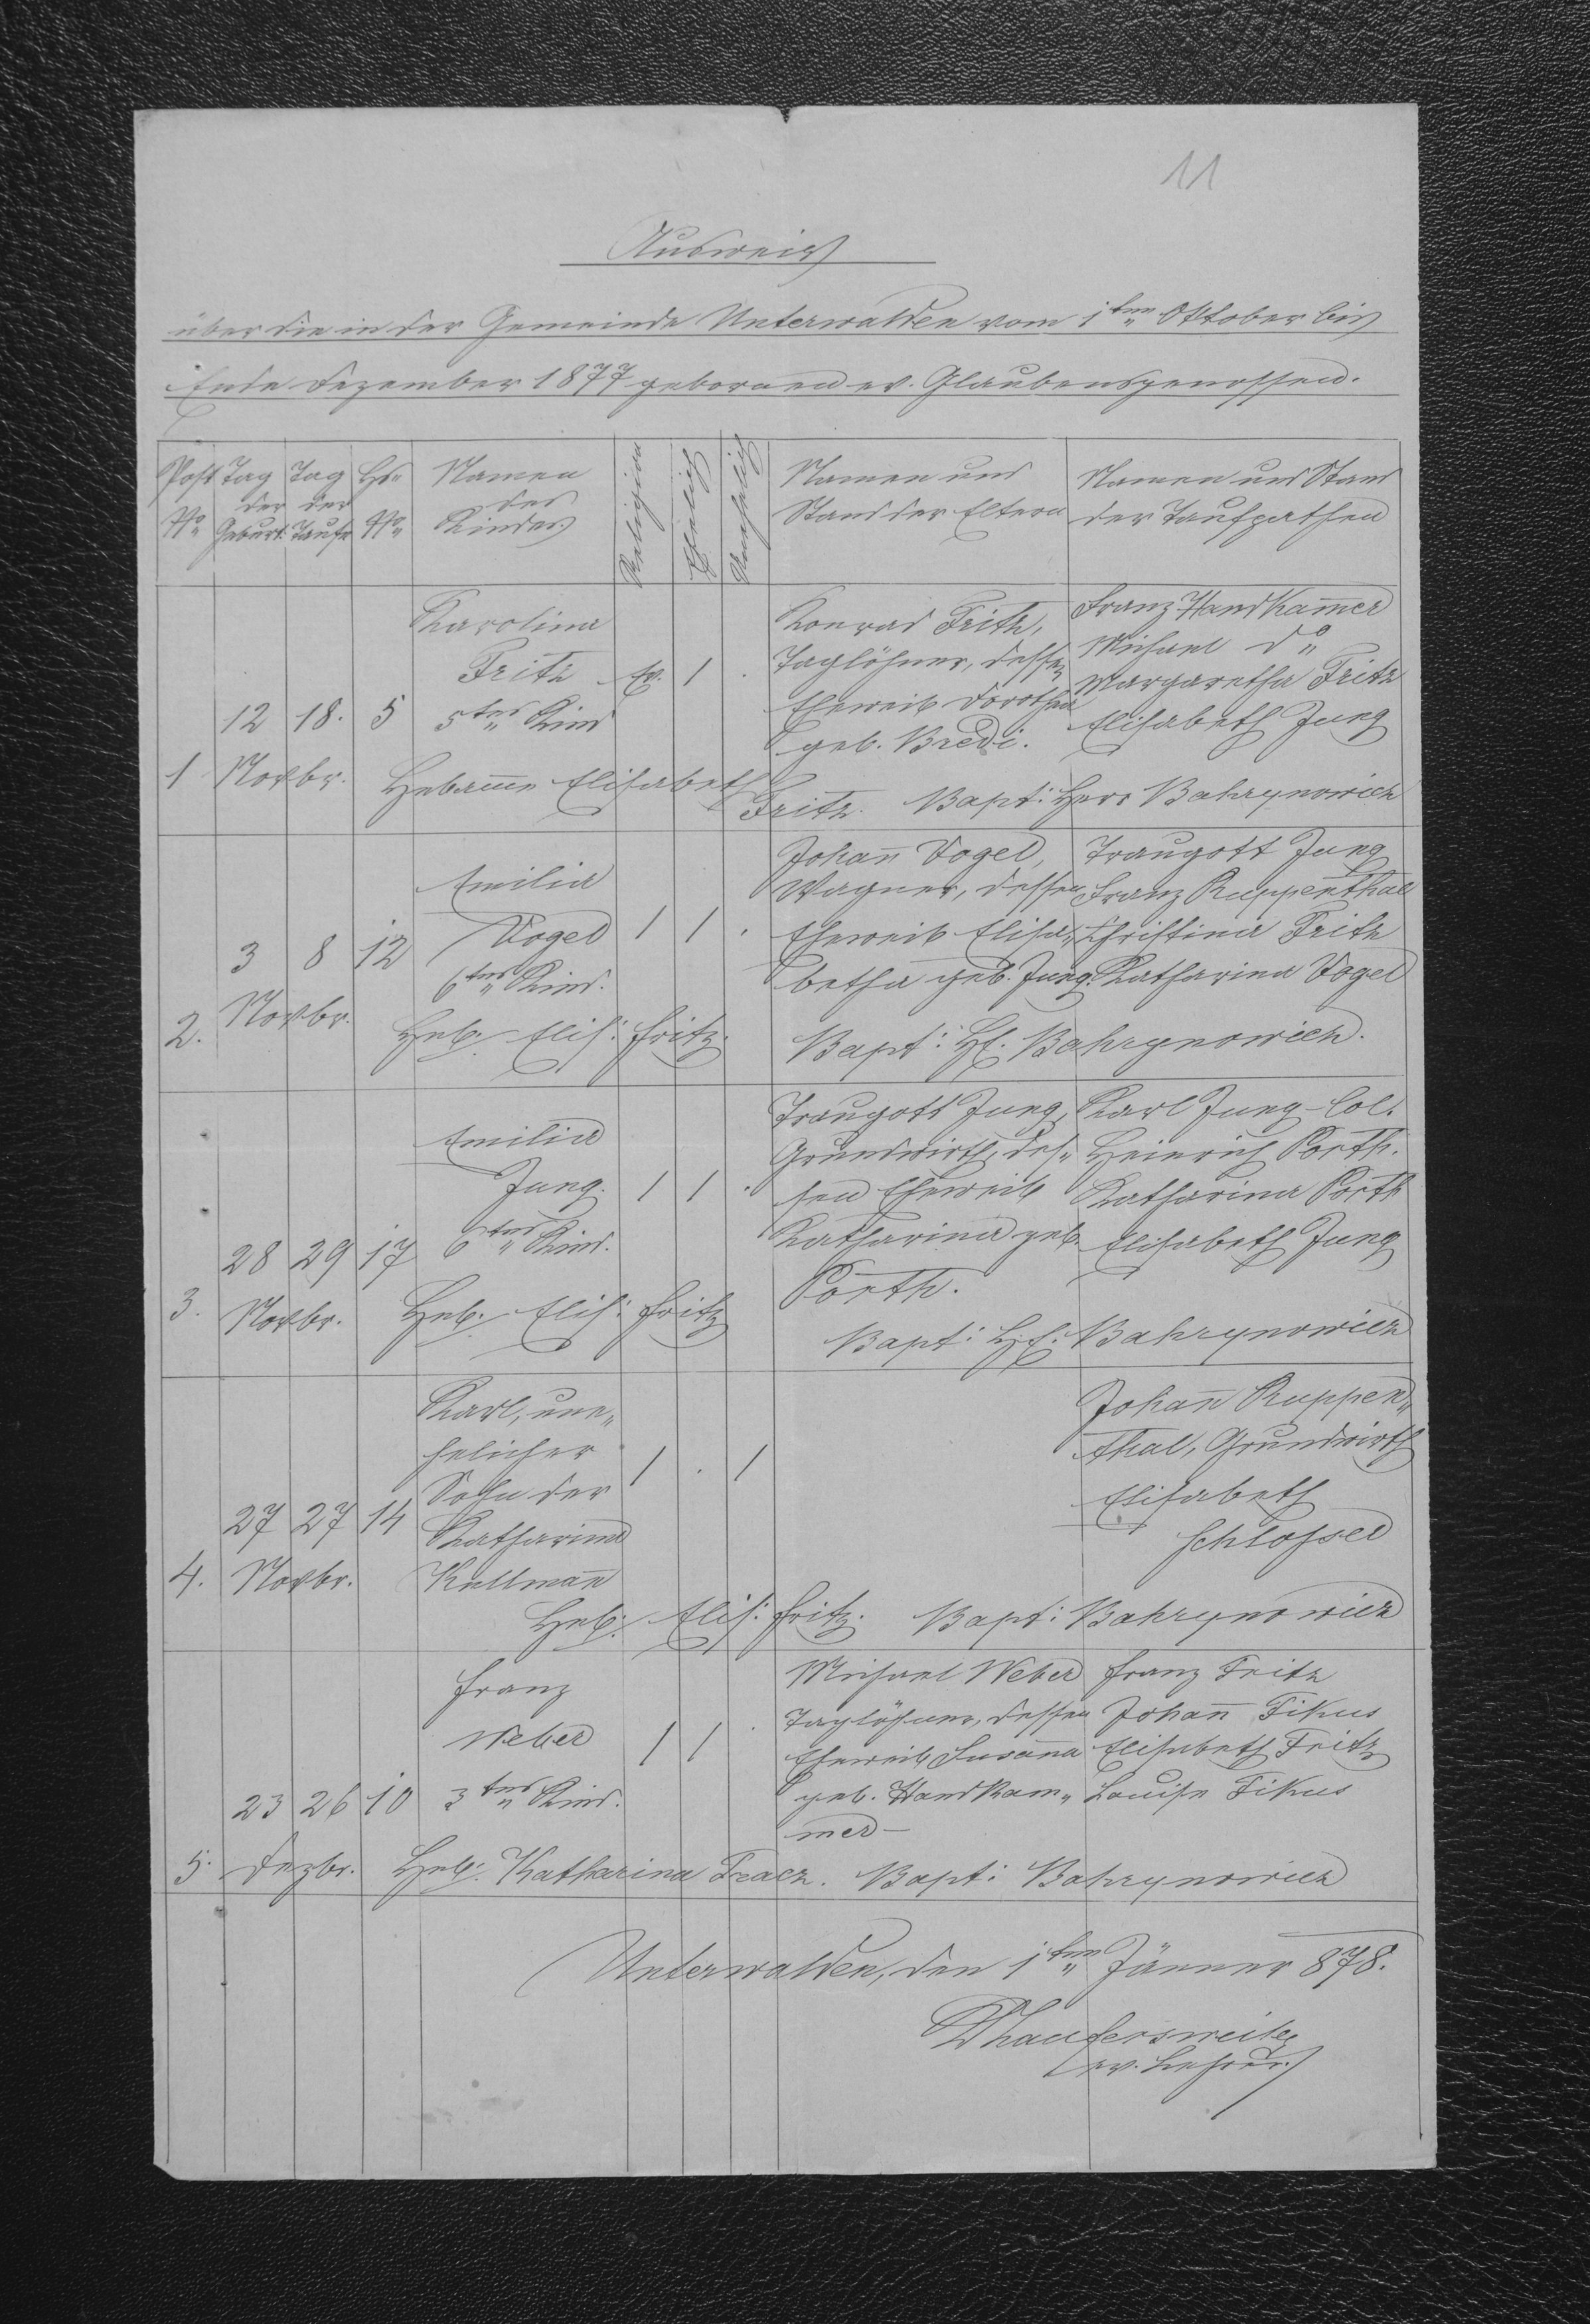 11
Ausweis
über die in der Gemeinde Unterwalden vom 1ten Oktober bis
Ende Dezember 1877 geborenen ev. Glaubensgenossen.
Post No
Tag der Geburt
Tag der Taufe
Hs. No
Namen des Kindes
Religion
Ehelich
Unehelich
Namen und Stand der Eltern
Namen und Stand der Taufpathen
Karolina
Fritz
5tes Kind
12 18. 5
ev. 1 .
1 Novbr.
Konrad Fritz,
Taglöhner, dessen
Eheweib Dorothea
geb. Bredi.
Franz Handkam̄er
Michael do
Margaretha Fritz
Elisabeth Jung
Hebam̄e Elisabeth Fritz. Bapt: Herr Bahrynowicz
Emilia
Vogel
6tes Kind.
3 8 12
1 1 .
2. Novbr.
Johan̄ Vogel,
Wagner, dessen
Eheweib Elisa„
betha geb. Jung.
Traugott Jung
Franz Ruppenthal
Christina Fritz
Katharina Vogel
Heb. Elis: Fritz. Bapt: H. Bahrynowicz.
Emilia
Jung.
6tes Kind.
28 29 17
1 1 .
3. Novbr.
Traugott Jung,
Grundwirth, des„
sen Eheweib
Katharina geb.
Porth.
Karl Jung Col.
Heinrich Porth.
Katharina Porth
Elisabeth Jung
Heb. Elis: Fritz
Bapt: H. Bahrynowicz
Karl, une„
helicher
Sohn der
Katharina
Kullman̄
27 27 14
1 . 1
4. Novbr.
Johan̄ Ruppen„
thal, Grundwirth
Elisabeth
Schlosser
Heb: Elis: Fritz. Bapt: Bahrynowicz
Franz
Weber
3tes Kind.
23 26 10
1 1 .
5. Dezbr.
Michael Weber
Taglöhner, dessen
Eheweib Susan̄a
geb. Handkam„
mer
Franz Fritz
Johan̄ Fikus
Elisabeth Fritz
Louise Fikus
Heb: Katharina Tracz. Bapt: Bahrynowicz
Unterwalden, den 1ten Jänner 878.
ev. Lehrer.